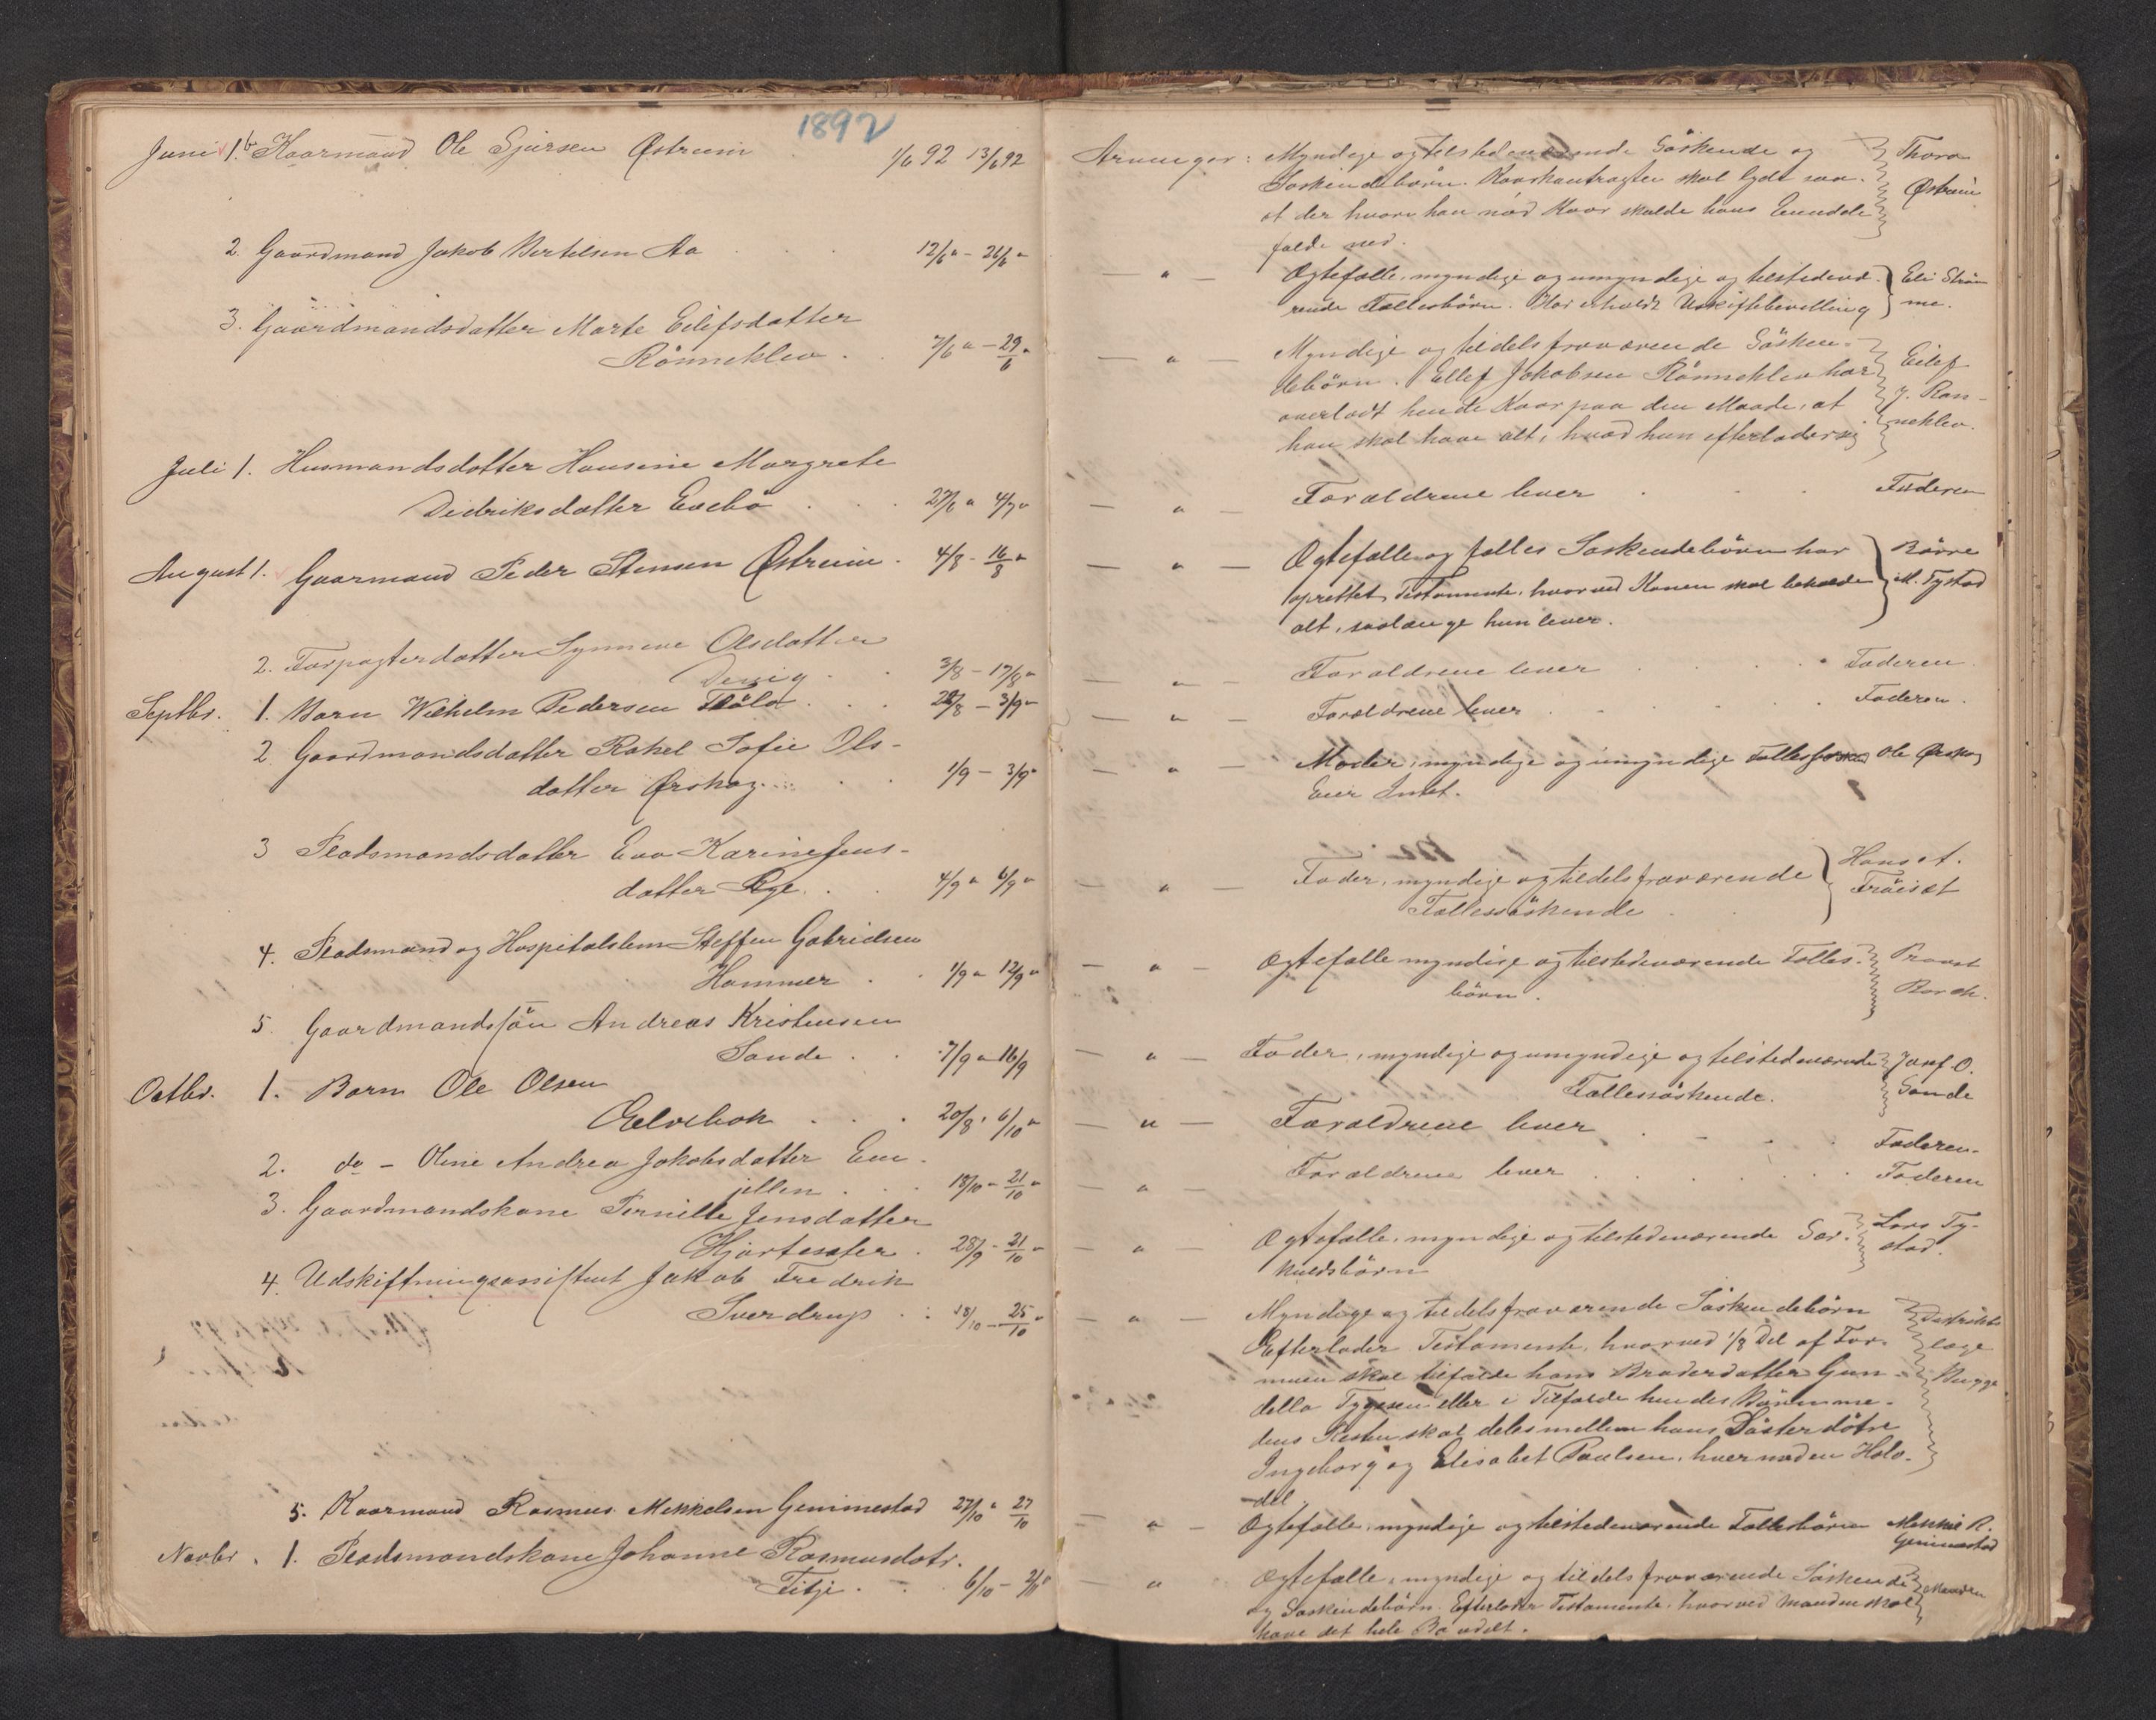 1892
Juni 1. Kaarmand Ole Sjursen Østreim 1/6 92 13/6 92
2. Gaardmand Jakob Bertelsen Aa 12/6 " - 26/6 "
3. Gaardmandsdatter Marte Eilifsdatter
Rönneklev . 7/6 " - 29/6 "
Juli 1. Husmandsdatter Hansine Margrete
Didriksdatter Evebö . . . 27/6 " 4/7 "
August 1. Gaarmand Peder Stensen Østreim . 4/8 - 16/8 "
2. Forpagterdatter Synneve Olsdatter
3/8 - 17/8 "
Septbr. 1. Barn Wilhelm Pedersen . . . 28/8 - 3/9 "
2 Gaardmandsdatter Rakel Sofie Ols-
datter Ørskog . . . 1/9 - 3/9 "
3 Pladsmandsdatter Eva Karine Jens-
datter Ryg . . 4/9 " 6/9 "
4. Pladsmand og Hospitalslem Steffen Gabrielsen
Hammer . . 1/9 " 12/9 "
5. Gaardmandssön Andreas Kristensen
Sande . . 7/9 " 16/9
Octbr. 1. Barn Ole Olsen
Gjelvebok . . . 20/8 . 6/10 "
2. do - Oline Andrea Jakobsdatter Em-
jellen . . . 18/10 - 21/10 "
3. Gaardmandskone Pernille Jensdatter
Hjortesæter . 28/9 - 21/10 "
4. Udskiftningsassistent Jakob Fredrik
Sverdrup . . 18/10 - 25/10 "
5. Kaarmand Rasmus Mikkelsen Gjemmestad 27/10 " 27/10
Novbr. 1. Pladsmandskone Johanne Rasmusdatr.
Fitje . . . 6/10 -
Arvinger: Myndige og tilstedeværende Söskende og Thora
Söskendebörn. Kaarkontrakten skal lyde saa Østreim
at der hvor han nöd Kaar skulde hans Eiendele
falde ned.
— " — Ægtefælle, myndige og umyndige og tilstedevæ- Eli Ström-
rende Fællesbörn. Har erholdt Uskiftebevilling me.
— " — Myndige og tildels fraværende Sösken- Eilif
debörn. Ellef Jakobsen Rönneklev har J. Rön-
overladt hende Kaar paa den Maade, at neklev.
han skal have alt, hvad hun efterlader sig
— " — Forældrene lever . . . Faderen
— " — Ægtefælle og fælles Söskendebörn har Börre
oprettet Testamente, hvorved Konen skal beholde M. Tystad
alt, saalænge hun lever.
— " — Forældrene lever . . . Faderen
— " — Forældrene lever . . . Faderen.
— " — Moder, myndige og umyndige Ole Ørskog
Eier Intet.
— " — Fader, myndige og tildels fraværende Hans
Fællessöskende
— " — Ægtefælle myndige og tilstedeværende Fælles- Provst
börn.
— " — Fader, myndige og umyndige og tilstedeværende Josef O.
Fællessöskende. Sande
— " — Forældrene lever . . . Faderen.
— " — Forældrene lever . . . Faderen
— " — Ægtefælle, myndige og tilstedeværende Sær- Lars Ty-
kuldsbörn stad.
— " — Myndige og tildels fraværende Söskendebörn Distrikts-
Efterlader Testamente, hvorved 1/8 Del af For- læge
muen skal tilfalde hans Broderdatter Gun- Bugge
della eller i Tilfælde hendes
dens Resten skal deles mellem hans Sösterdötre
Ingeborg og Elisabet Paulsen, hver med en Halv-
del.
— " — Ægtefælle, myndige og tilstedeværende Fællesbörn Mikkel R.
Gjemmestad
— " — Ægtefælle, myndige og tildels fraværende Söskende Manden
og Söskendebörn. Efterlader Testamente, hvorved Manden skal
have det hele Bo udelt.